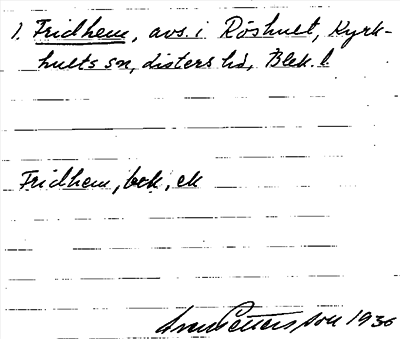 1. Fridhem, avs. i Röshult, Kyrk-
hults sn, Listers hd, Blek. l.
Fridhem, bek, ek
Sven Pettersson 1936